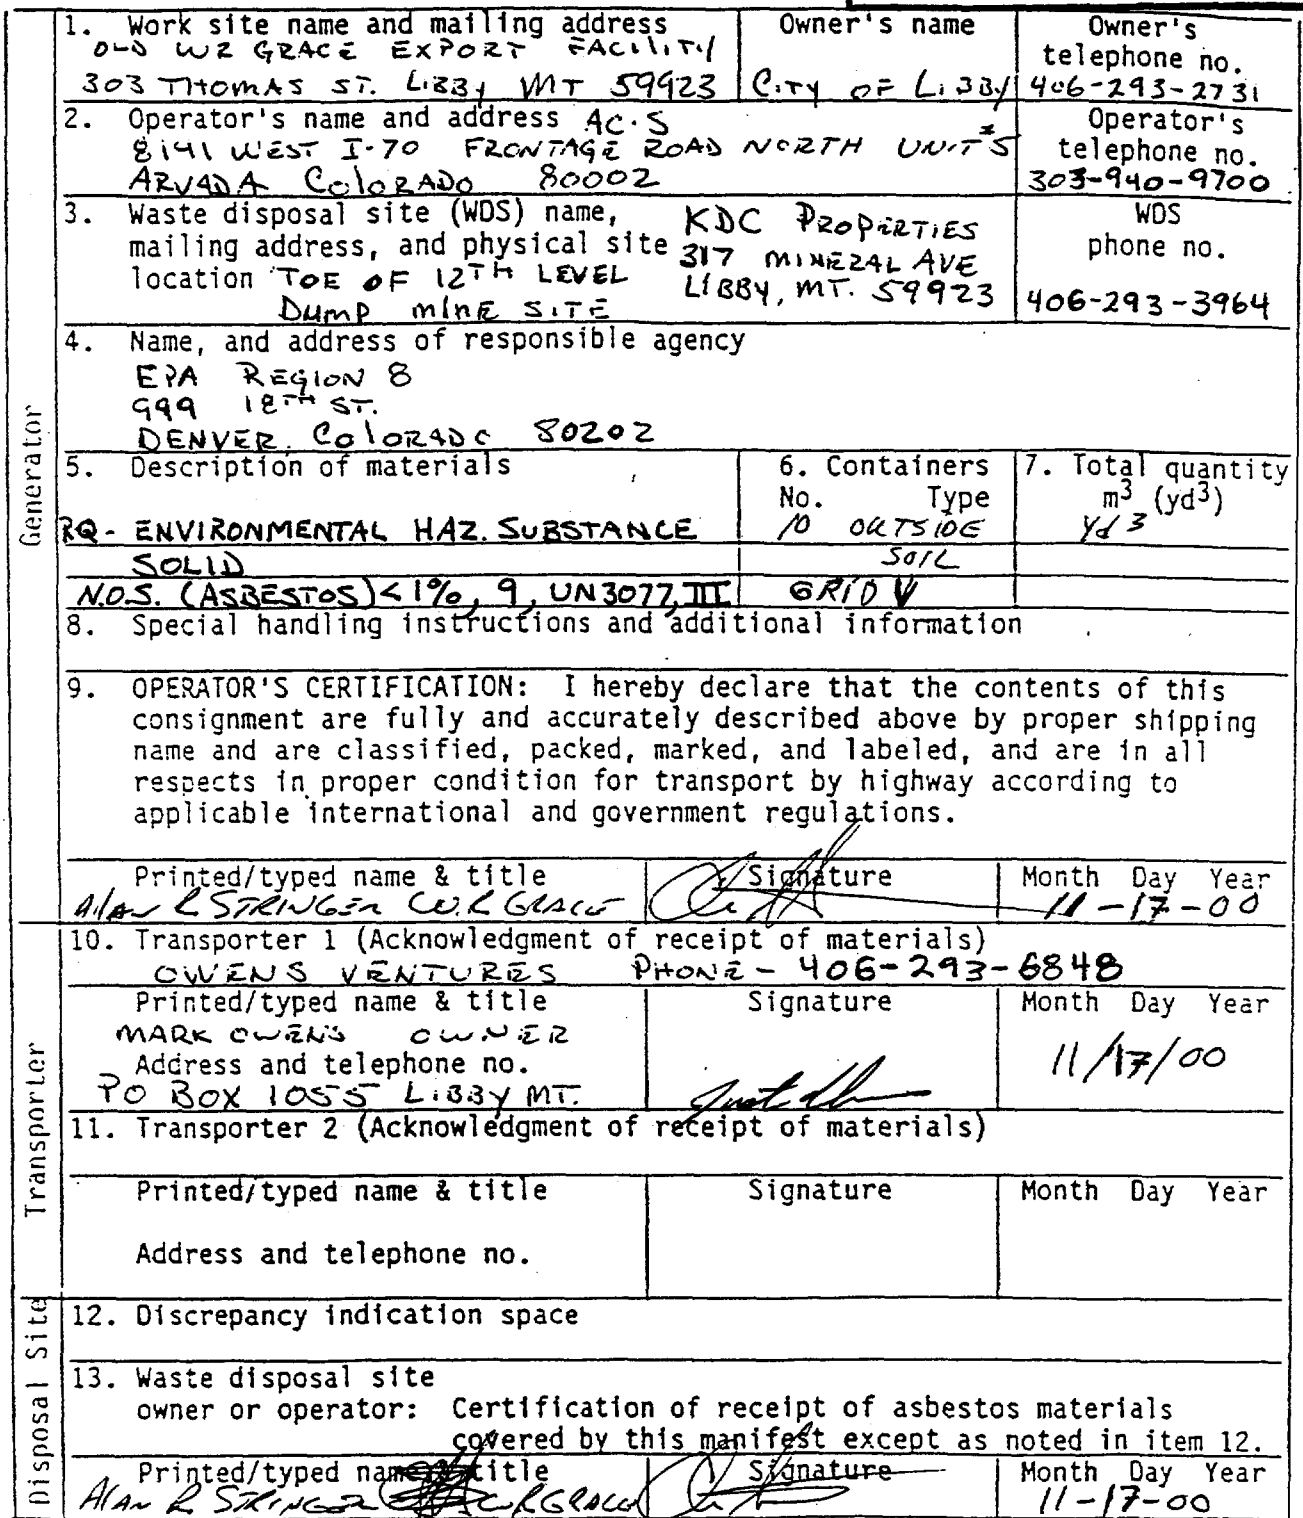 1. Work site name and mailing address
OLD WR GRACE EXPORT FACILITY
303 THOMAS ST. LIBBY MT 59923
Owner's name
CITY OF LIBBY
Owner's
telephone no.
406-293-2731
2. Operator's name and address AC·S
8141 WEST I-70 FRONTAGE ROAD NORTH UNIT #5
ARVADA COLORADO 80002
Operator's
telephone no.
303-940-9700
3. Waste disposal site (WDS) name,
mailing address, and physical site
location TOE OF 12TH LEVEL
DUMP MINE SITE
KDC PROPERTIES
317 MINERAL AVE
LIBBY, MT. 59923
WDS
phone no.
406-293-3964
4. Name, and address of responsible agency
EPA REGION 8
999 18TH ST.
DENVER, COLORADO 80202
Generator
5. Description of materials
RQ - ENVIRONMENTAL HAZ. SUBSTANCE
SOLID
N.O.S. (ASBESTOS) < 1%, 9, UN3077, III
6. Containers
No. Type
10 OUTSIDE
SOIL
GRID V
7. Total quantity
m3 (yd3)
Yd 3
8. Special handling instructions and additional information
9. OPERATOR'S CERTIFICATION: I hereby declare that the contents of this
consignment are fully and accurately described above by proper shipping
name and are classified, packed, marked, and labeled, and are in all
respects in proper condition for transport by highway according to
applicable international and government regulations.
Printed/typed name & title
Alan R STRINGER W.R GRACE
Signature
Month Day Year
11-17-00
Transporter
10. Transporter 1 (Acknowledgment of receipt of materials)
OWENS VENTURES PHONE - 406-293-6848
Printed/typed name & title
MARK OWENS OWNER
Address and telephone no.
PO BOX 1055 LIBBY MT.
Signature
Month Day Year
11/17/00
11. Transporter 2 (Acknowledgment of receipt of materials)
Printed/typed name & title
Address and telephone no.
Signature
Month Day Year
Disposal Site
12. Discrepancy indication space
13. Waste disposal site
owner or operator: Certification of receipt of asbestos materials
covered by this manifest except as noted in item 12.
Printed/typed name & title
Alan R STRINGER WR GRACE
Signature
Month Day Year
11-17-00